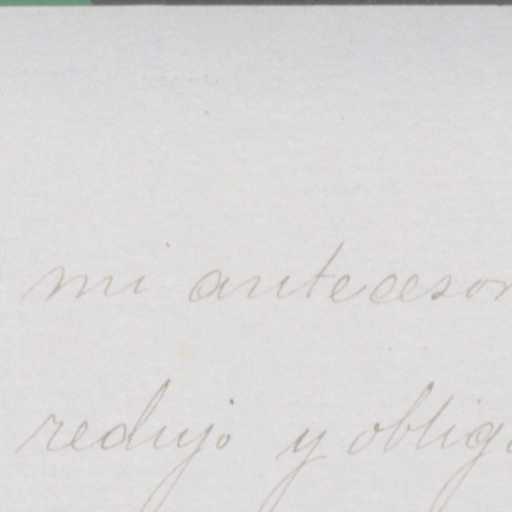 mi antecesor
redujo y oblig